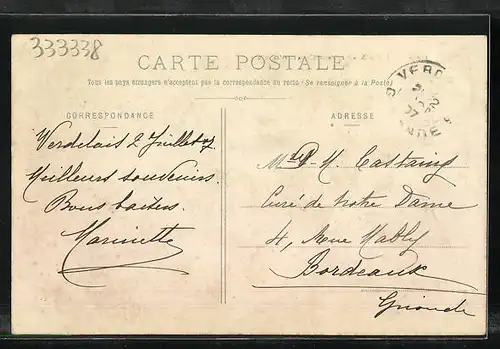 333338
CARTE POSTALE
Tous les pays étrangers n'acceptent pas la correspondance au recto (Se renseigner à la Poste)
CORRESPONDANCE
ADRESSE
Verdelais 2 Juillet 07
Meilleurs souvenirs.
Bons baisers.
Marinette
M. Castaing
Curé de Notre Dame
4, Rue Mably
Bordeaux
Gironde
VERD